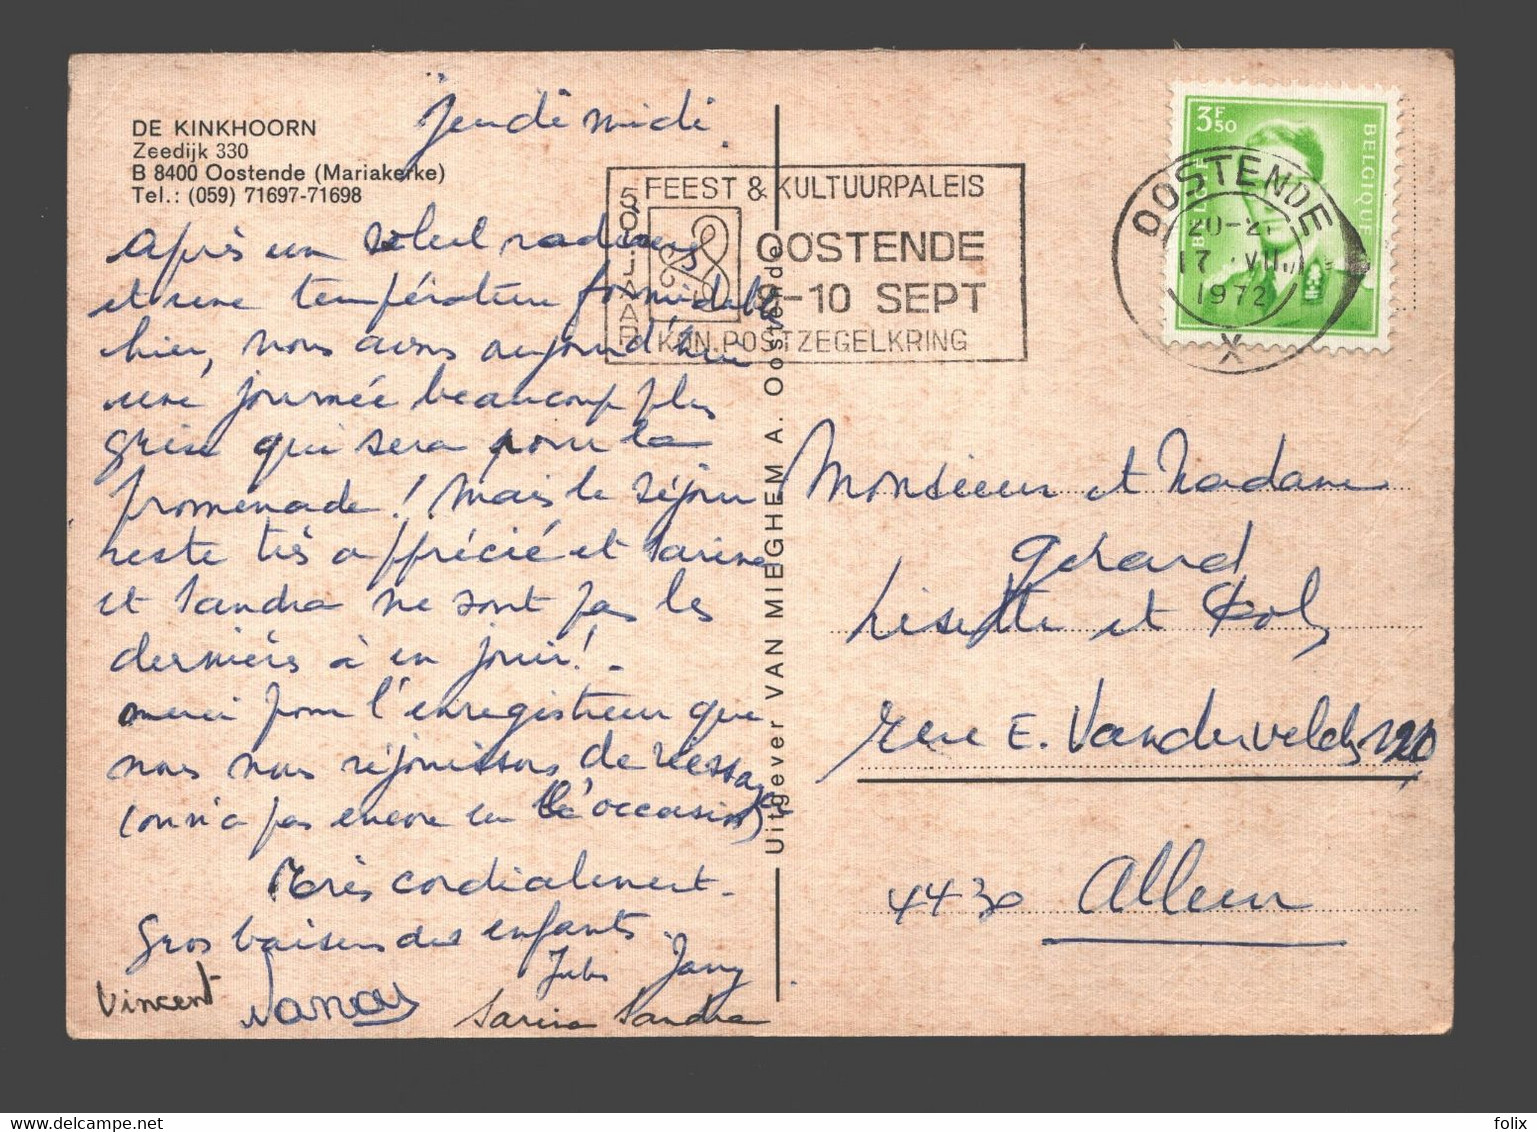 DE KINKHOORN
Zeedijk 330
B 8400 Oostende (Mariakerke)
Tel.: (059) 71697-71698
Jeudi midi.
Après un soleil radieux
et une température formidable
hier, nous avons aujourd'hui
une journée beaucoup plus
grise qui sera pour la
promenade! Mais le séjour
reste très apprécié et Sarina
et Sandra ne sont pas les
dernières à en jouir!.
Merci pour l'enregistreur que
nous nous réjouissons de
(on n'a pas encore eu l'occasion)
Très cordialement.
Gros baisers des enfants.
Jules Jany
Vincent
Sarina Sandra
Uitgever VAN MIEGHEM A. Oostende
50 JAAR
FEEST & KULTUURPALEIS
OOSTENDE
9-10 SEPT
KON. POSTZEGELKRING
OOSTENDE
20-21
17 VIII
1972
X
3F50
BELGIË
BELGIQUE
Monsieur et Madame
Gérard
Lisette et
rue E. Vandervelde, 120
4430 Alleur
folix